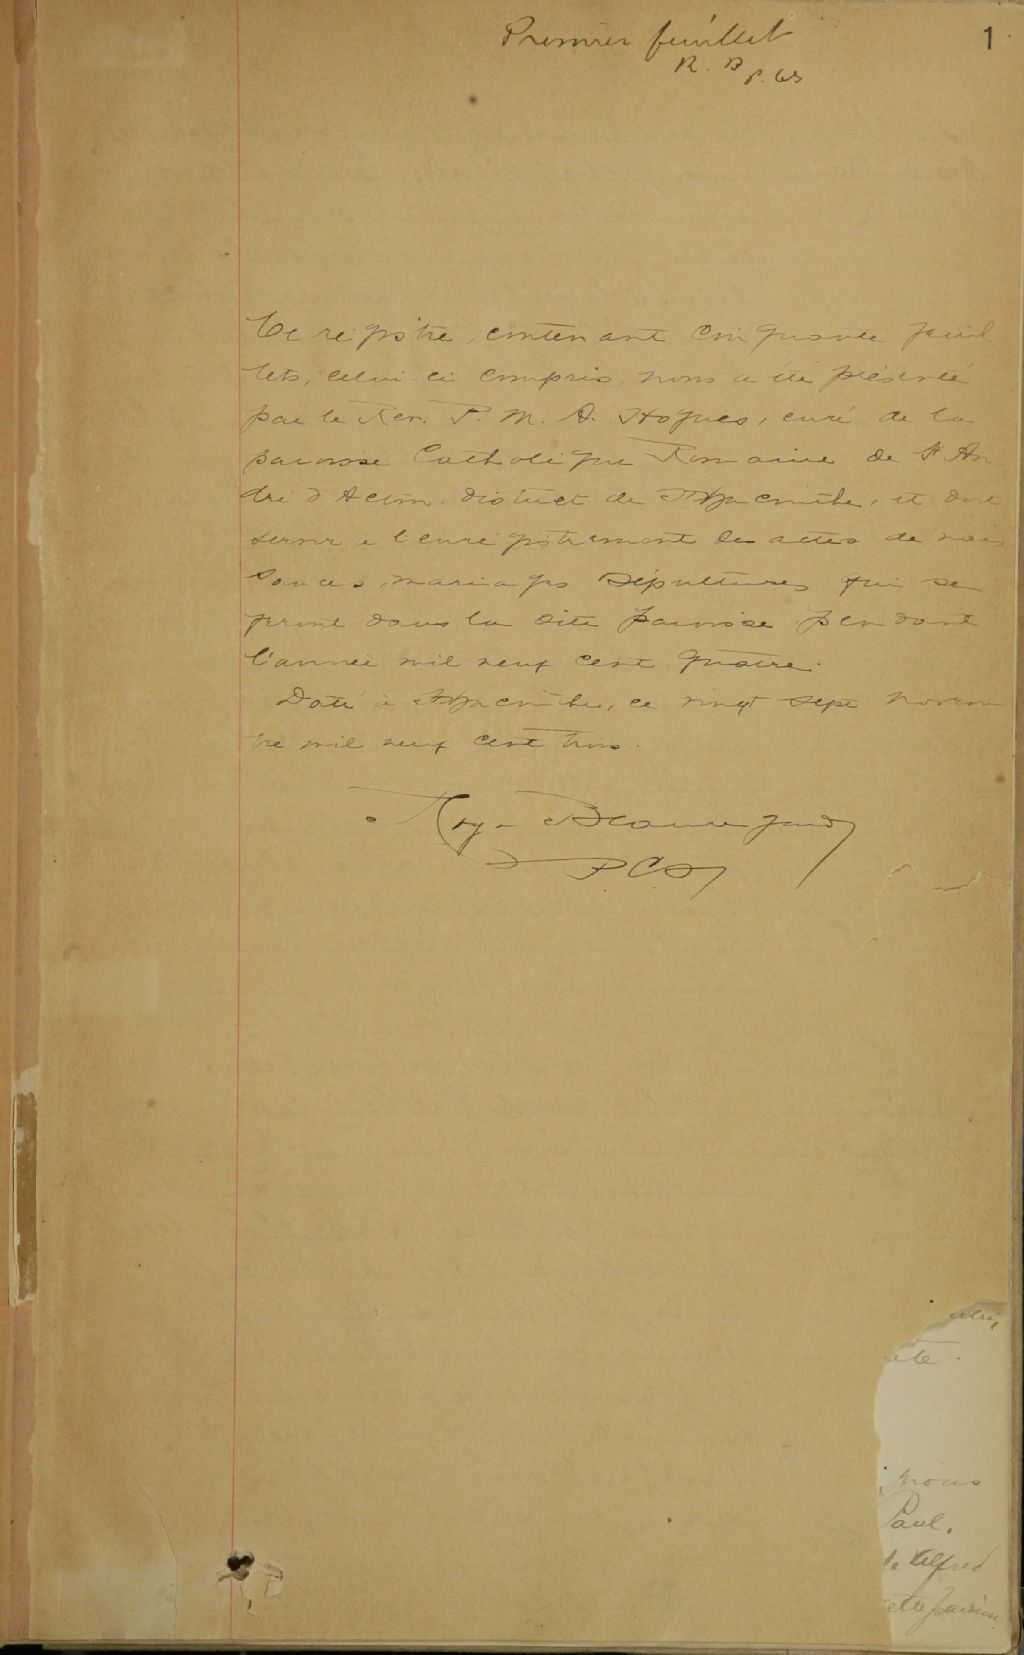 Premier feuillet
1
R. B
p. cs
Ce régistre, contenant cinquante feuil
lets, celui-ci compris, nous a été présenté
par le Rev. P. M. A. Hogues, curé de la
paroisse Catholique Romaine de St An
dré d'Acton, district de St Hyacinthe, et doit
servir a l'enregistrement des actes de nais
sances, mariages Sépultures qui se
feront dans la dite paroisse pendant
l'année mil neuf cent quatre.
Daté à St Hyacinthe, ce vingt sept Novem
bre mil neuf cent trois.
Roy - Beauregard
P C S
ete.
nous
Paul,
de Alfred
cette paroisse